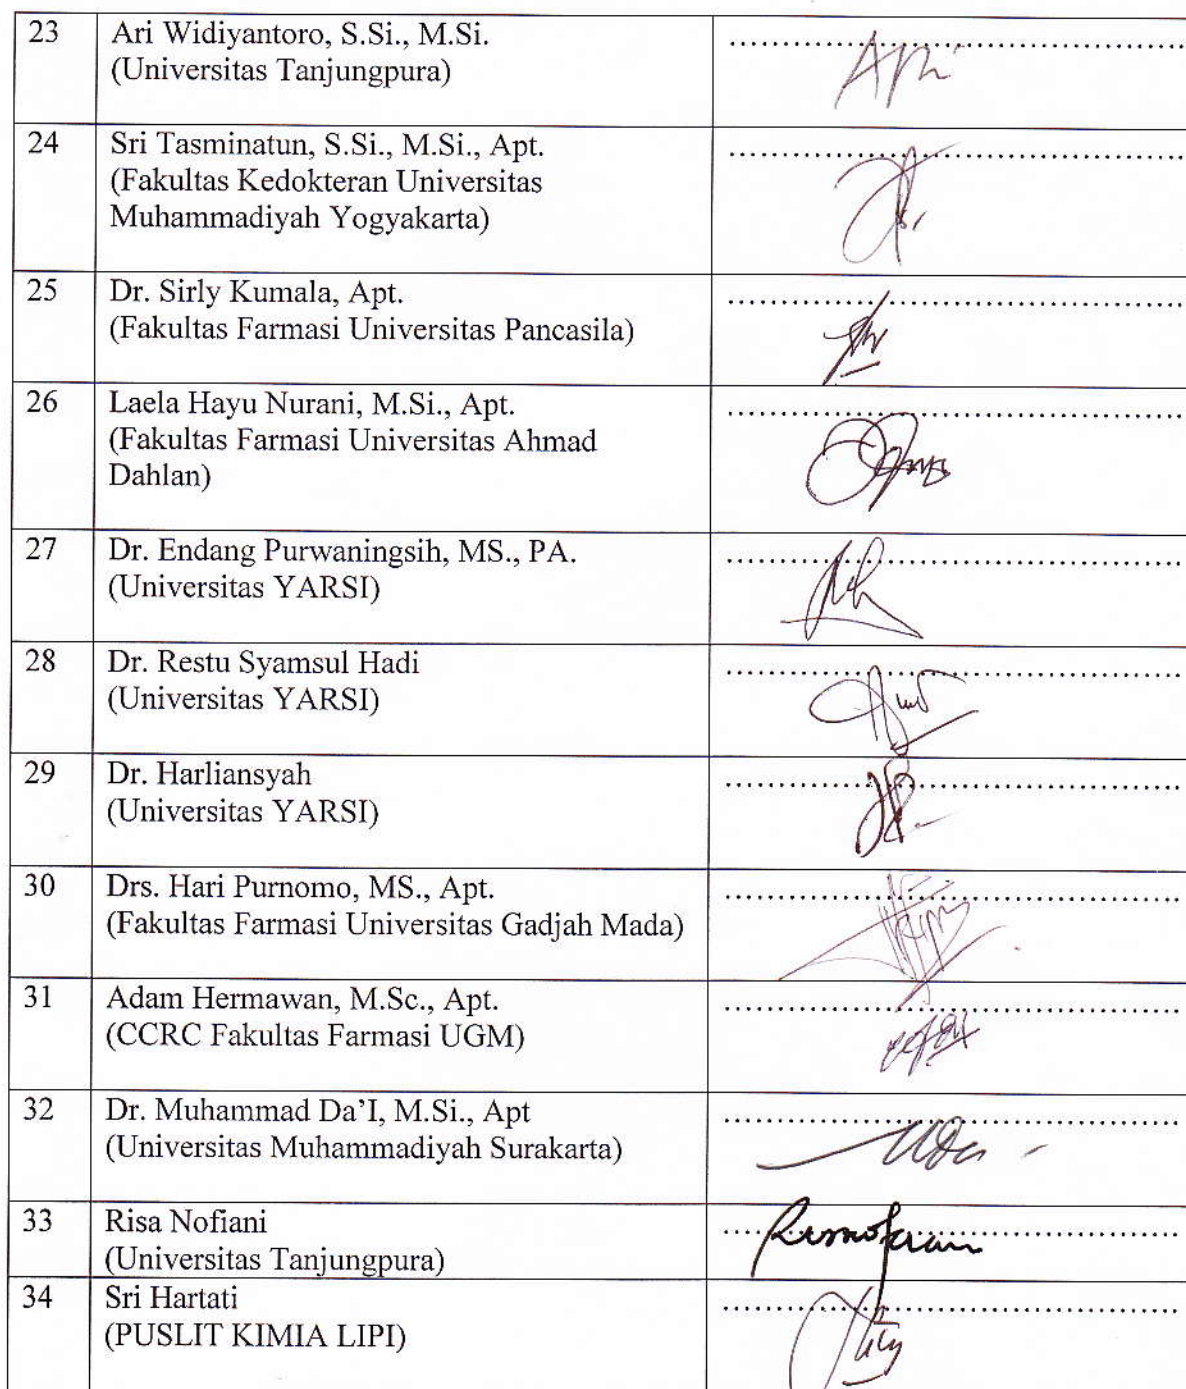 23 Ari Widiyantoro, S.Si., M.Si. ........................................
(Universitas Tanjungpura)
24 Sri Tasminatun, S.Si., M.Si., Apt. ........................................
(Fakultas Kedokteran Universitas
Muhammadiyah Yogyakarta)
25 Dr. Sirly Kumala, Apt. ........................................
(Fakultas Farmasi Universitas Pancasila)
26 Laela Hayu Nurani, M.Si., Apt. ........................................
(Fakultas Farmasi Universitas Ahmad
Dahlan)
27 Dr. Endang Purwaningsih, MS., PA. ........................................
(Universitas YARSI)
28 Dr. Restu Syamsul Hadi ........................................
(Universitas YARSI)
29 Dr. Harliansyah ........................................
(Universitas YARSI)
30 Drs. Hari Purnomo, MS., Apt. ........................................
(Fakultas Farmasi Universitas Gadjah Mada)
31 Adam Hermawan, M.Sc., Apt. ........................................
(CCRC Fakultas Farmasi UGM)
32 Dr. Muhammad Da’I, M.Si., Apt ........................................
(Universitas Muhammadiyah Surakarta)
33 Risa Nofiani ........................................
(Universitas Tanjungpura)
34 Sri Hartati ........................................
(PUSLIT KIMIA LIPI)